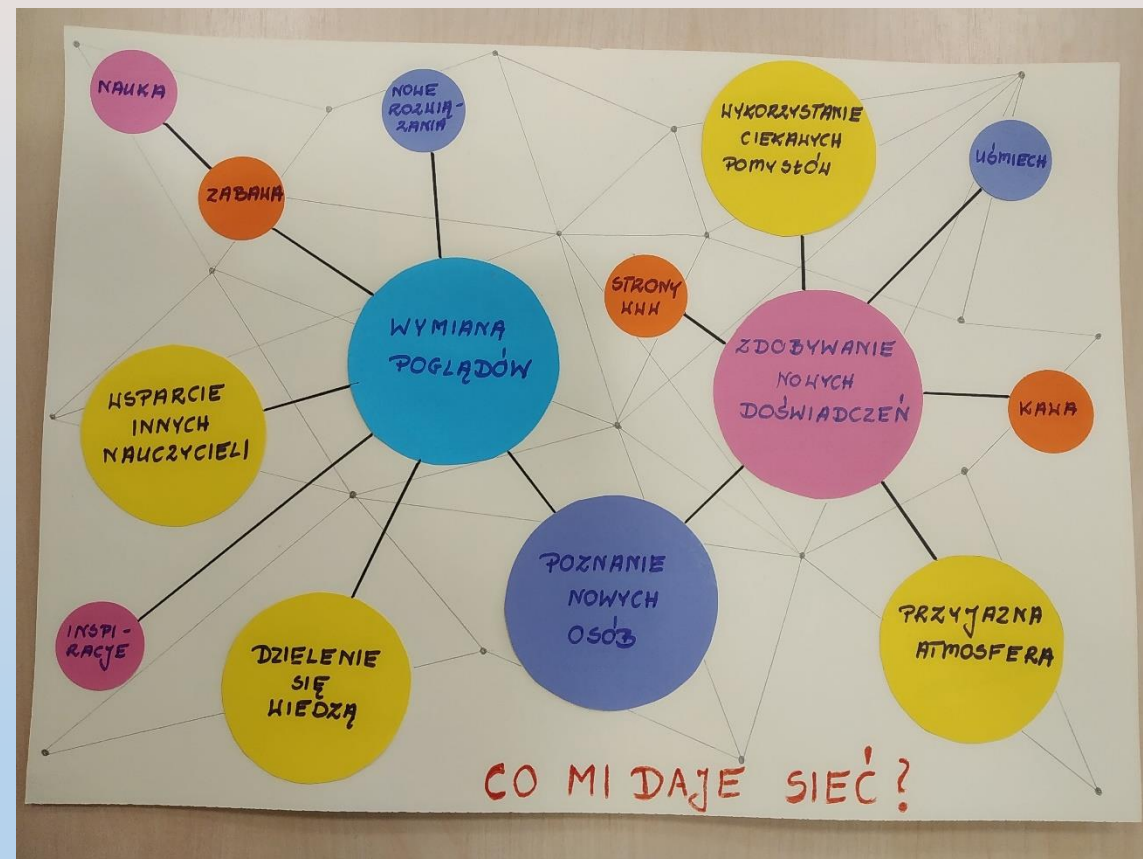 NAUKA
NOWE
ROZWIĄ-
ZANIA
WYKORZYSTANIE
CIEKAWYCH
POMYSŁÓW
UŚMIECH
ZABAWA
STRONY
WWW
WYMIANA
POGLĄDÓW
ZDOBYWANIE
NOWYCH
DOŚWIADCZEŃ
KAWA
WSPARCIE
INNYCH
NAUCZYCIELI
POZNANIE
NOWYCH
OSÓB
INSPI-
RACJE
DZIELENIE
SIĘ
WIEDZĄ
PRZYJAZNA
ATMOSFERA
CO MI DAJE SIEĆ?